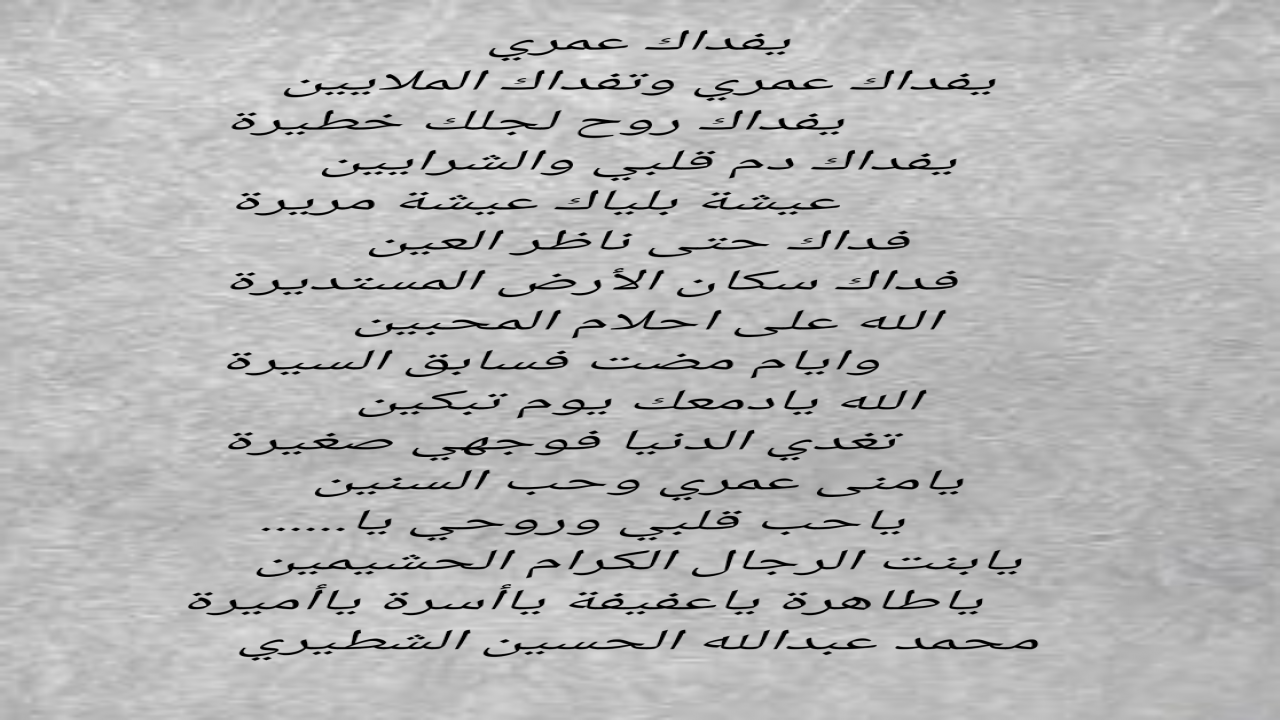 يفداك عمري
يفداك عمري وتفداك الملايين
يفداك روح لجلك خطيرة
يفداك دم قلبي والشرايين
عيشة بلياك عيشة مريرة
فداك حتى ناظر العين
فداك سكان الأرض المستديرة
الله على احلام المحبين
وايام مضت فسابق السيرة
الله يادمعك يوم تبكين
تغدي الدنيا فوجهي صغيرة
يامنى عمري وحب السنين
ياحب قلبي وروحي يا......
يابنت الرجال الكرام الحشيمين
ياطاهرة ياعفيفة ياأسرة ياأميرة
محمد عبدالله الحسين الشطيري